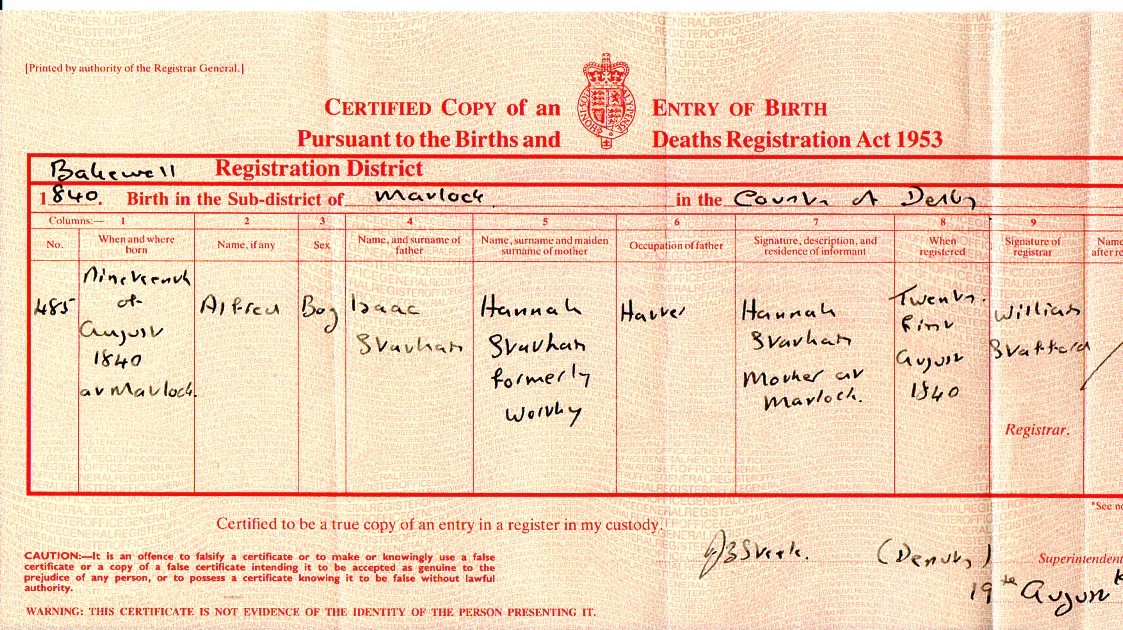 [Printed by authority of the Registrar General.]
CERTIFIED COPY of an ENTRY OF BIRTH
Pursuant to the Births and Deaths Registration Act 1953
Bakewell Registration District
1840. Birth in the Sub-district of Matlock in the County of Derby
Columns:— 1 2 3 4 5 6 7 8 9
No. When and where born Name, if any Sex Name, and surname of father Name, surname and maiden surname of mother Occupation of father Signature, description, and residence of informant When registered Signature of registrar Name after re
485 Nineteenth of August 1840 at Matlock. Alfred Boy Isaac Statham Hannah Statham formerly Worthy Hatter Hannah Statham Mother at Matlock. Twenty first August 1840 William Registrar.
*See no
Certified to be a true copy of an entry in a register in my custody.
(Deputy) Superintendent
19th August
CAUTION:—It is an offence to falsify a certificate or to make or knowingly use a false
certificate or a copy of a false certificate intending it to be accepted as genuine to the
prejudice of any person, or to possess a certificate knowing it to be false without lawful
authority.
WARNING: THIS CERTIFICATE IS NOT EVIDENCE OF THE IDENTITY OF THE PERSON PRESENTING IT.